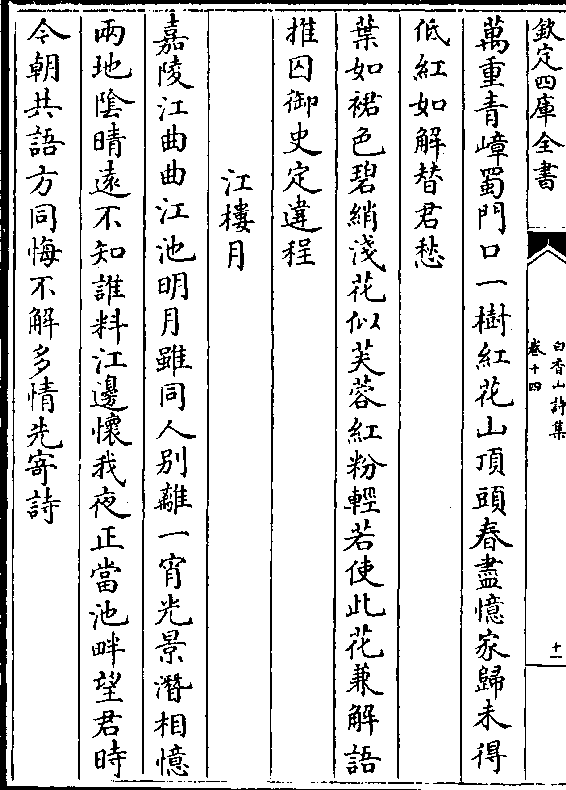 欽定四庫全書
白香山詩集
卷十四
十一
萬重青嶂蜀門口一樹紅花山頂頭春盡憶家歸未得
低紅如解替君愁
葉如裙色碧綃淺花似芙蓉紅粉輕若使此花兼解語
推囚御史定違程
江樓月
嘉陵江曲曲江池明月雖同人别離一宵光景潛相憶
兩地陰晴遠不知誰料江邊懷我夜正當池畔望君時
今朝共語方同悔不解多情先寄詩